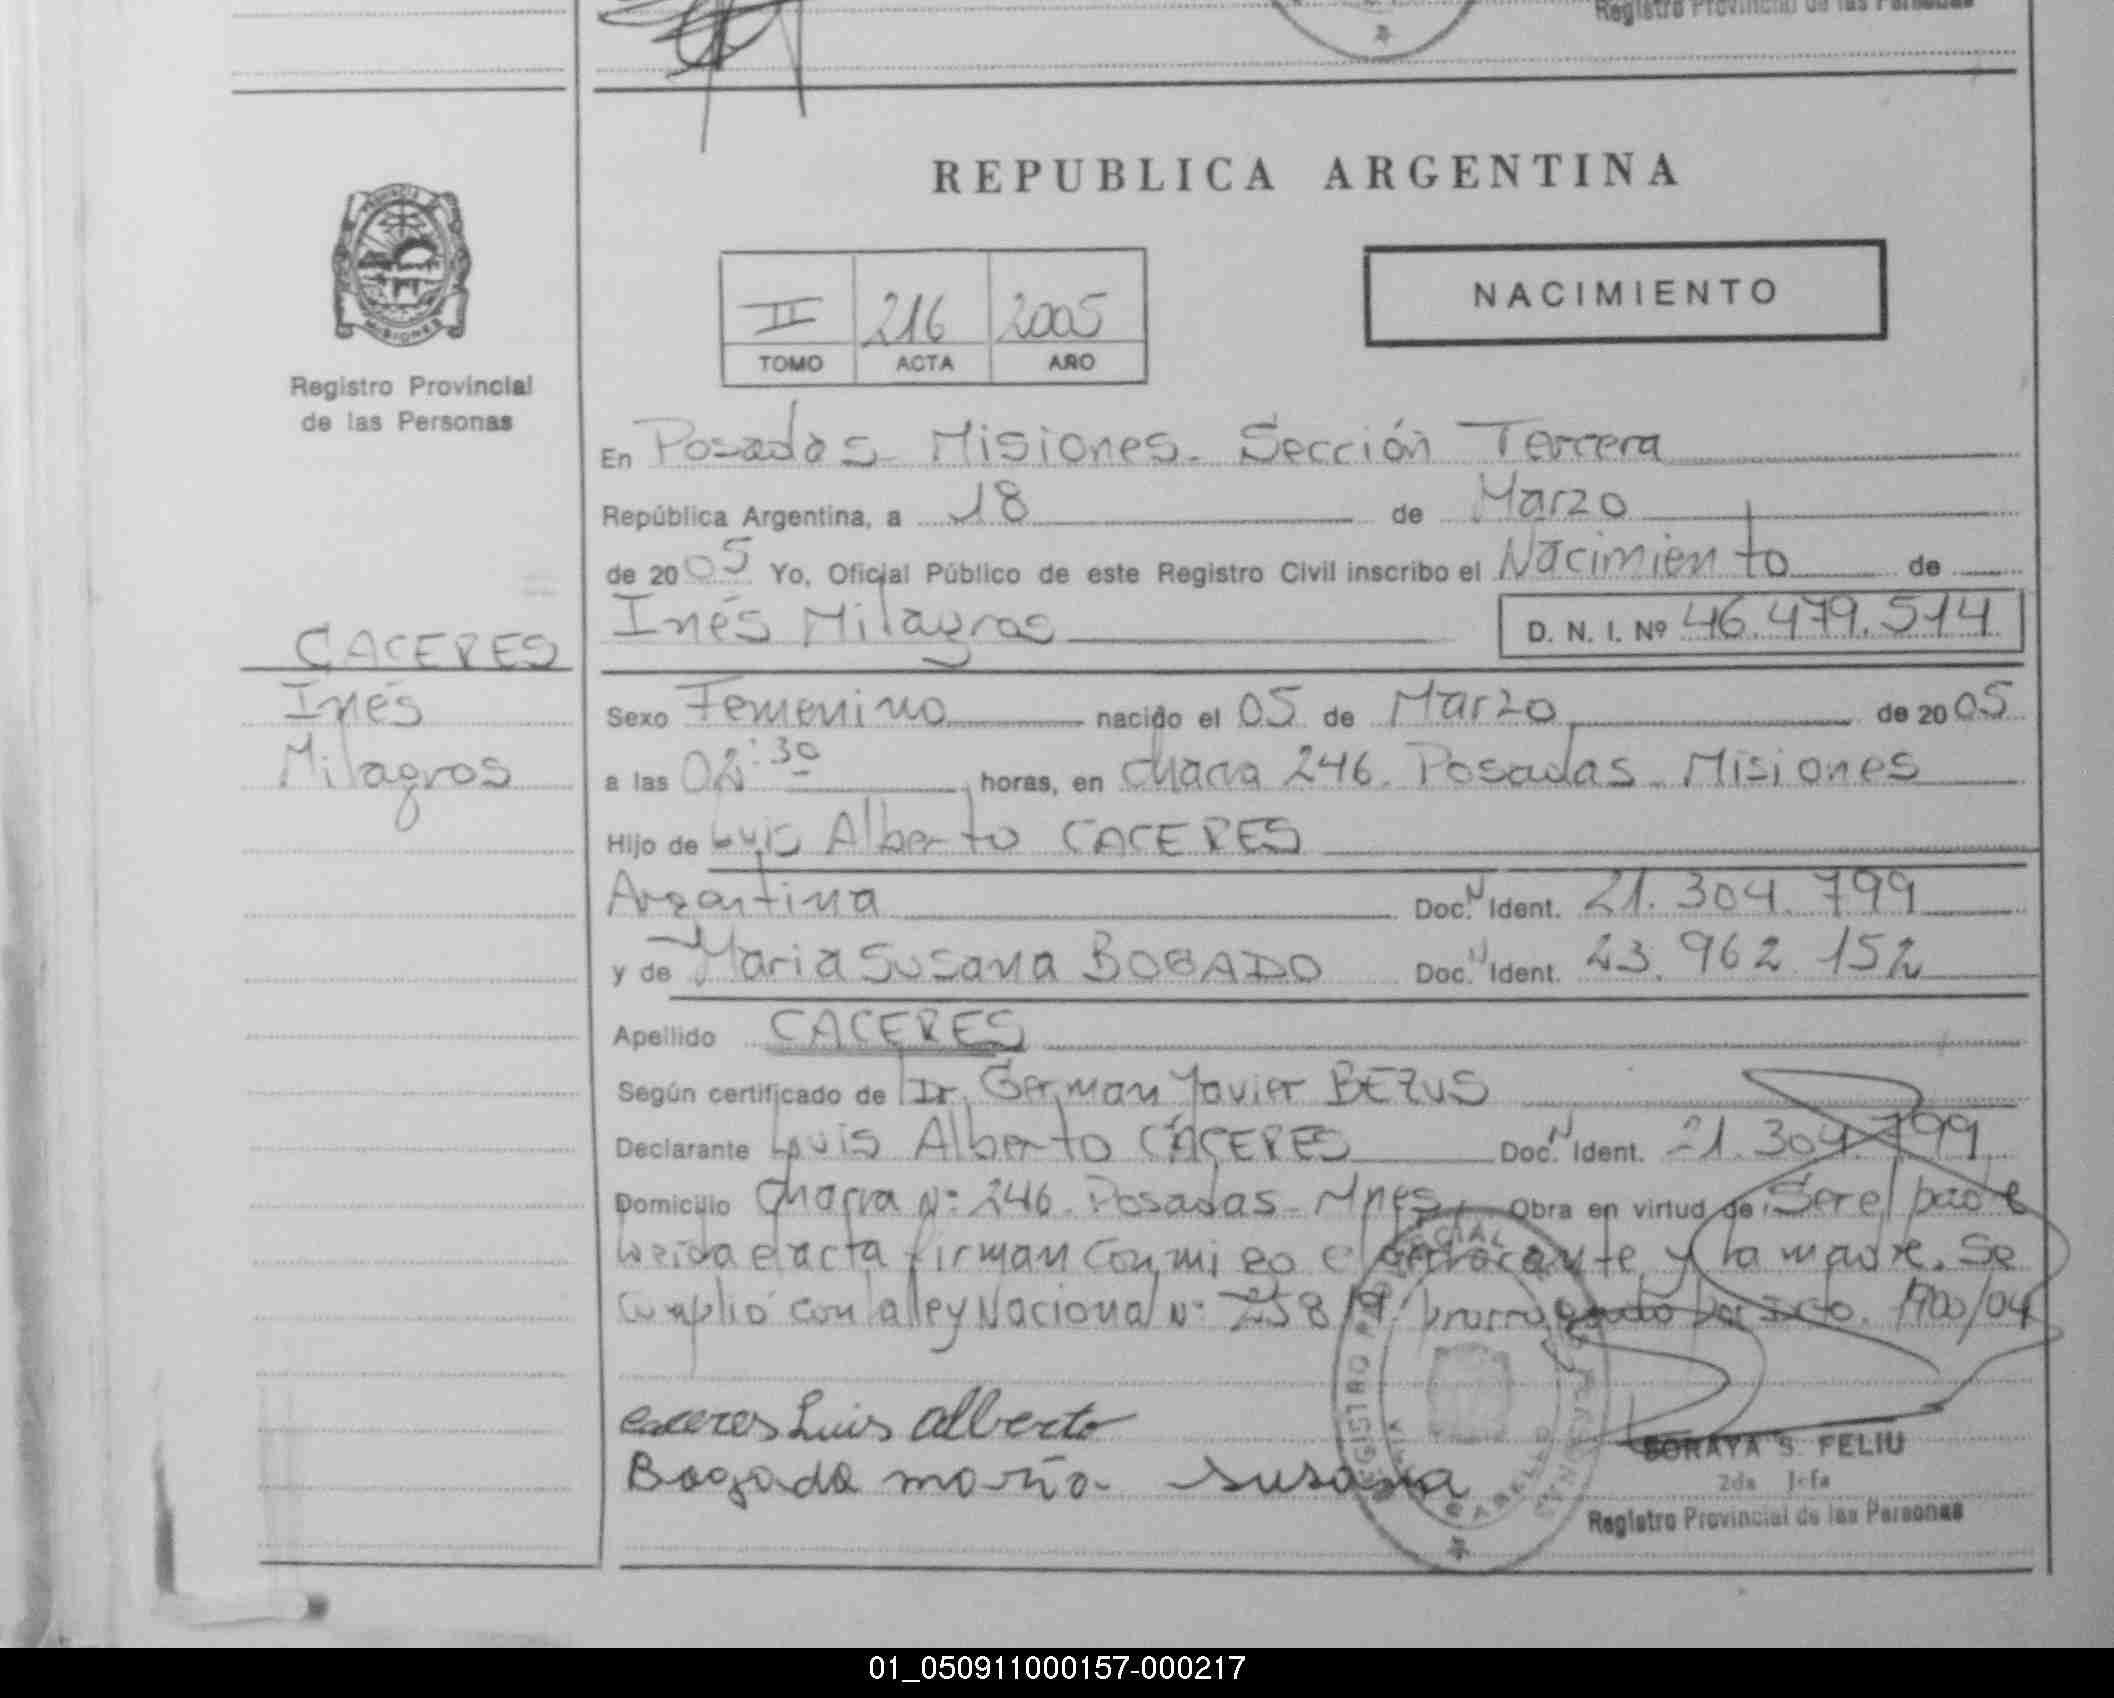 Registro Provincial de las Personas
REPUBLICA ARGENTINA
PROVINCIA DE
MISIONES
Registro Provincial
de las Personas
II 216 2005
TOMO ACTA AÑO
NACIMIENTO
En Posadas - Misiones - Sección Tercera
República Argentina, a 18 de Marzo
de 2005 Yo, Oficial Público de este Registro Civil inscribo el Nacimiento de
Inés Milagros D. N. I. Nº 46.479.514
CACERES
Inés
Milagros
Sexo Femenino nacido el 05 de Marzo de 2005
a las 02:30 horas, en chacra 246. Posadas - Misiones
Hijo de Luis Alberto CACERES
Argentina Doc. N Ident. 21.304.799
y de Maria Susana BOGADO Doc. N Ident. 23.962.152
Apellido CACERES
Según certificado de Dr. German Javier BEZUS
Declarante Luis Alberto CACERES Doc. N Ident. 21.304.799
Domicilio chacra Nº 246. Posadas - Mnes, Obra en virtud de Ser el padre
Leida el acta firman conmigo el declarante y la madre. Se
Cumplió con la ley Nacional Nº 25819. prorrogado por Dcto. 1700/04
caceres Luis alberto
Bogado maria susana
SORAYA S. FELIU
2da Jefa
Registro Provincial de las Personas
01_050911000157-000217